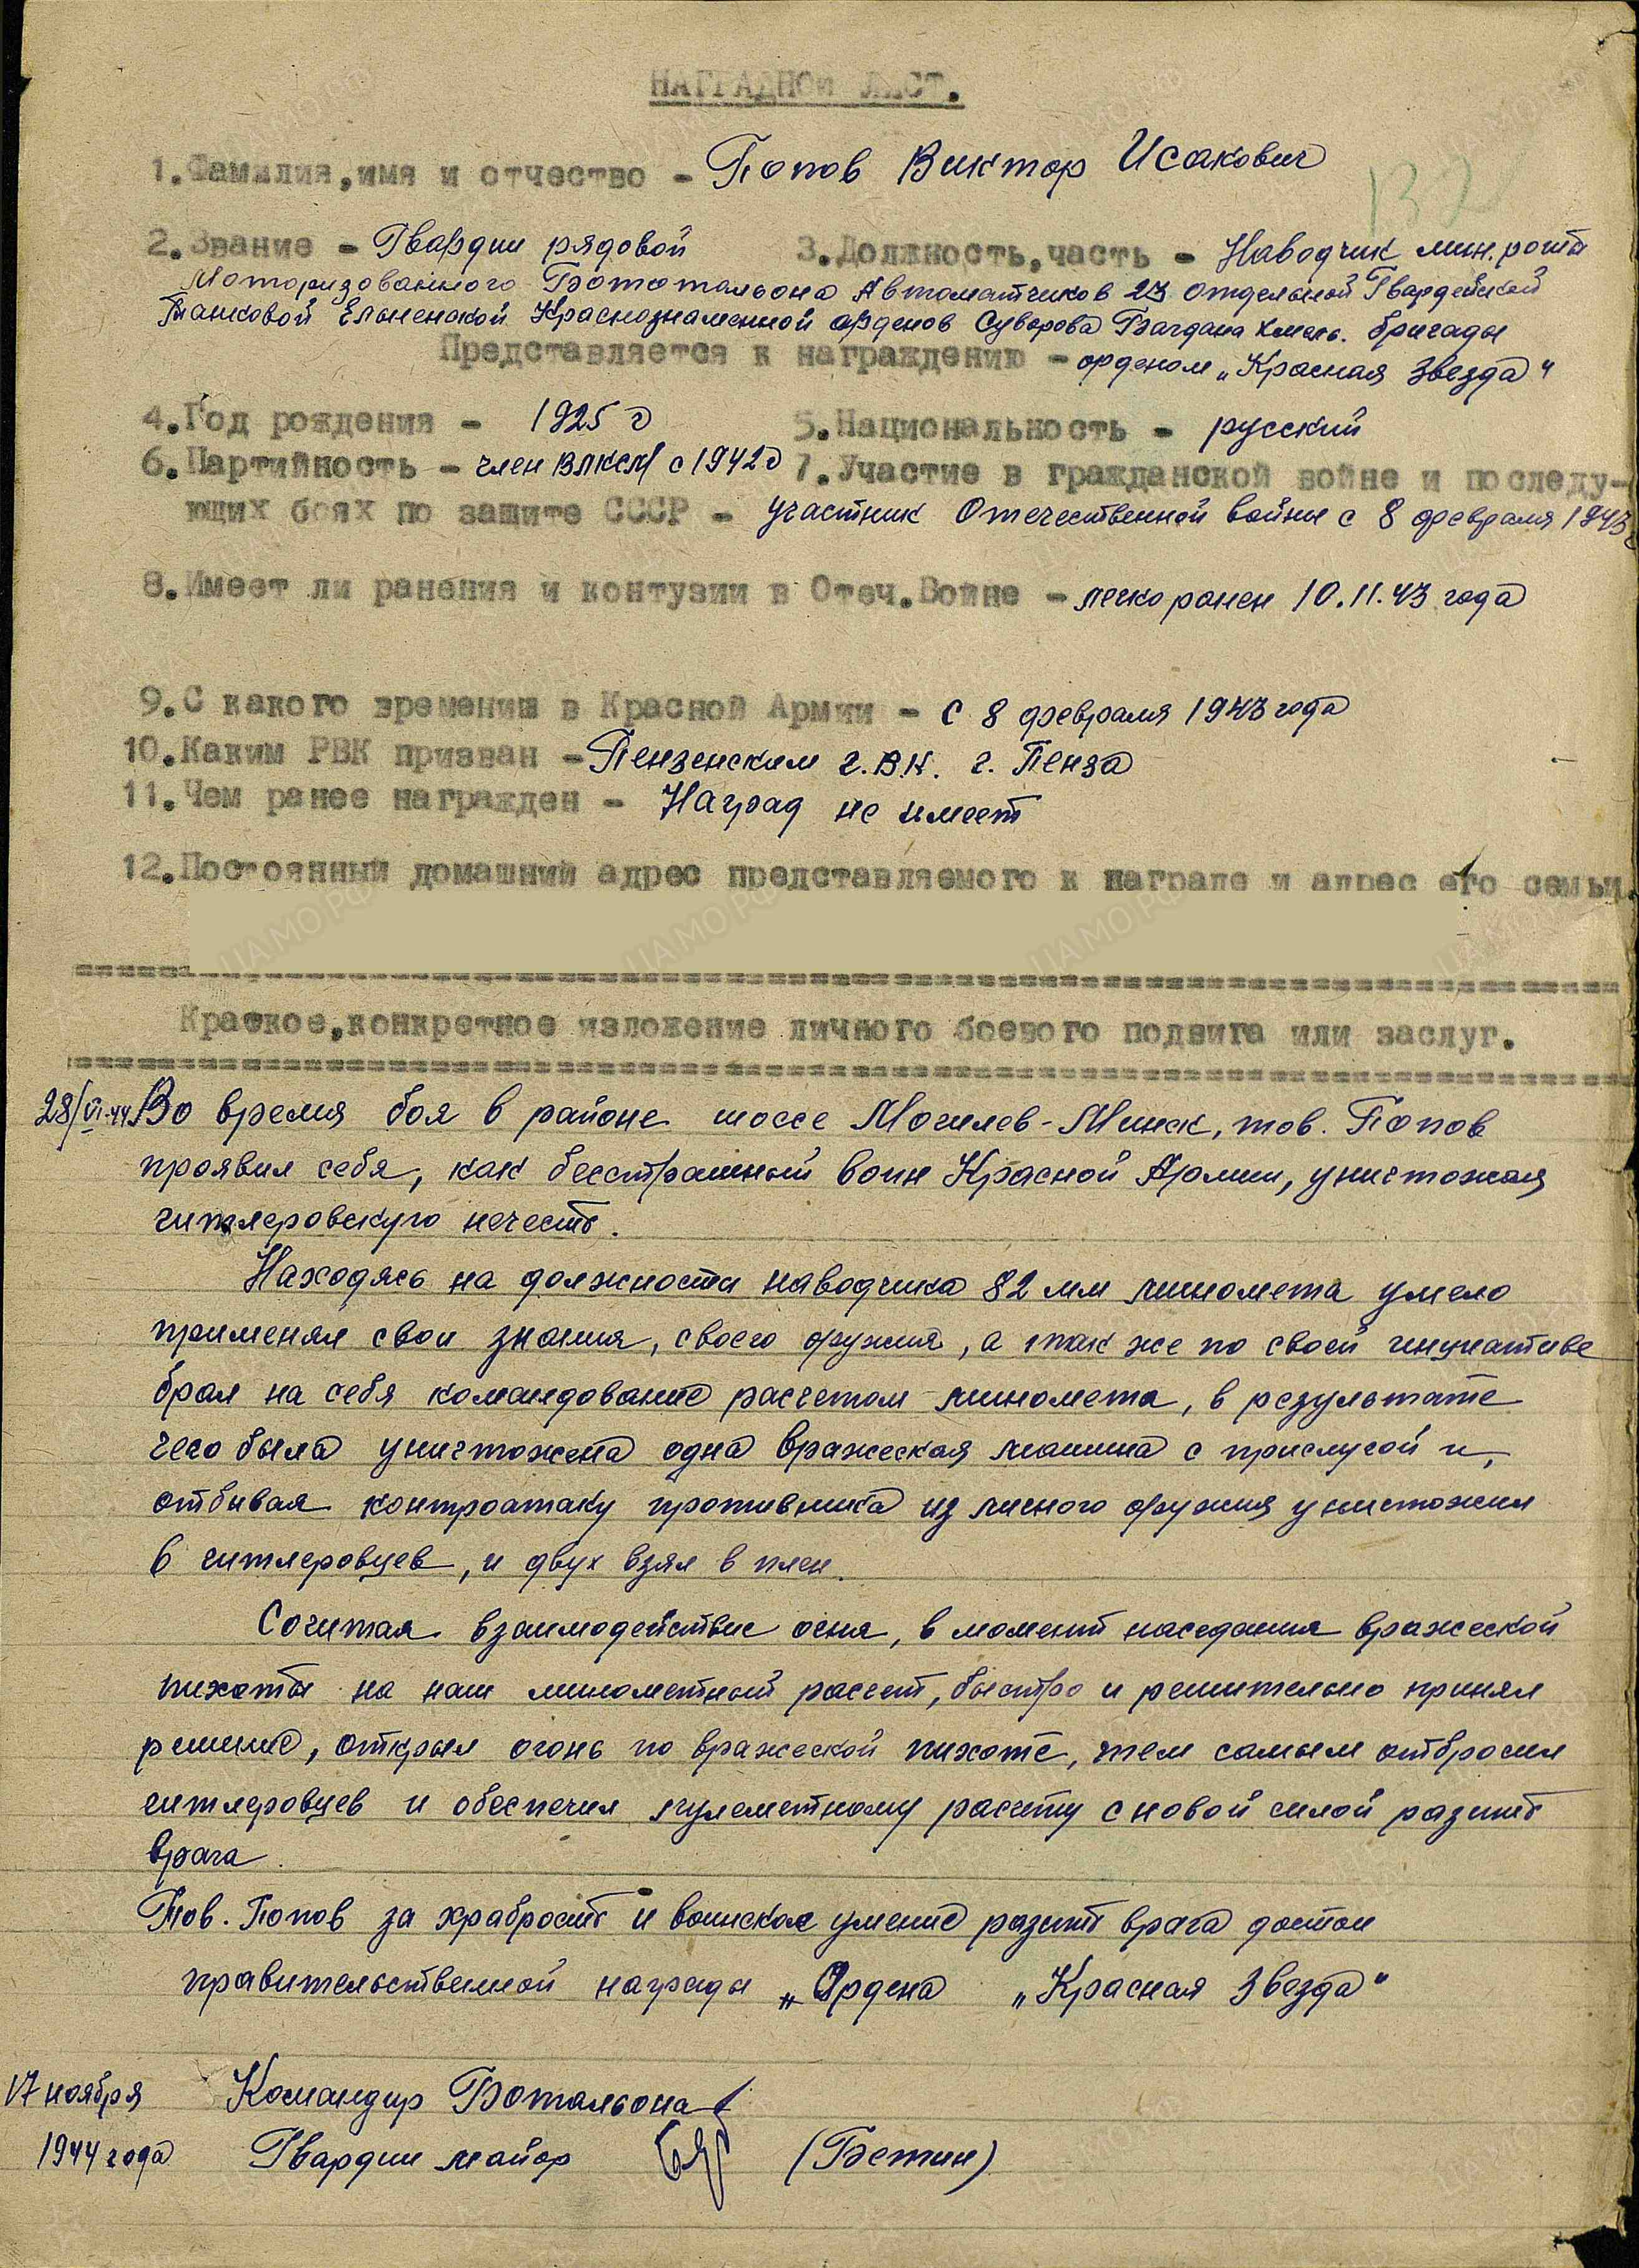 НАГРАДНОЙ ЛИСТ.
1.Фамилия,имя и отчество - Попов Виктор Исакович
2.Звание - Гвардии рядовой 3.Должность,часть - Наводчик мин. роты
Моторизованного Батотальона Автоматчиков 23 отдельной Гвардейской
Танковой Ельненской Краснознаменной орденов Суворова Багдана Хмель. бригады
Представляется к награждению - орденом „Красная Звезда"
4.Год рождения - 1925 г 5.Национальность - русский
6.Партийность - член ВЛКСМ с 1942г 7.Участие в гражданской войне и последу-
ющих боях по защите СССР - участник Отечественной войны с 8 февраля 1943г
8.Имеет ли ранения и контузии в Отеч.Войне - легко ранен 10.11.43 года
9.С какого времении в Красной Армии - с 8 февраля 1943 года
10.Каким РВК призван - Пензенским г.В.К. г. Пенза
11.Чем ранее награжден - Наград не имеет
12.Постоянный домашний адрес представляемого к награде и адрес его семьи.
Краткое,конкретное изложение личного боевого подвига или заслуг.
28/VI-44 Во время боя в районе шоссе Могилев-Минск, тов. Попов
проявил себя, как бесстрашный воин Красной Армии, уничтожая
гитлеровскую нечесть.
Находясь на должности наводчика 82 мм миномета умело
применял свои знания, своего оружия, а так же по своей инициативе
брал на себя командование расчетом миномета, в результате
чего была уничтожена одна вражеская машина с прислугой и,
отбивая контроатаку противника из личного оружия уничтожил
6 гитлеровцев, и двух взял в плен.
Сочитая взаимодействие огня, в момент наседания вражеской
пихоты на наш минометный расчет, быстро и решительно принял
решение, открыл огонь по вражеской пихоте, тем самым отбросил
гитлеровцев и обеспечил пулеметному расчету с новой силой разить
врага.
Тов. Попов за храбрость и воинское умение разить врага достои
правительственной награды „Ордена „Красная Звезда"
17 ноября Командир Батальона
1944 года Гвардии майор (Бетин)